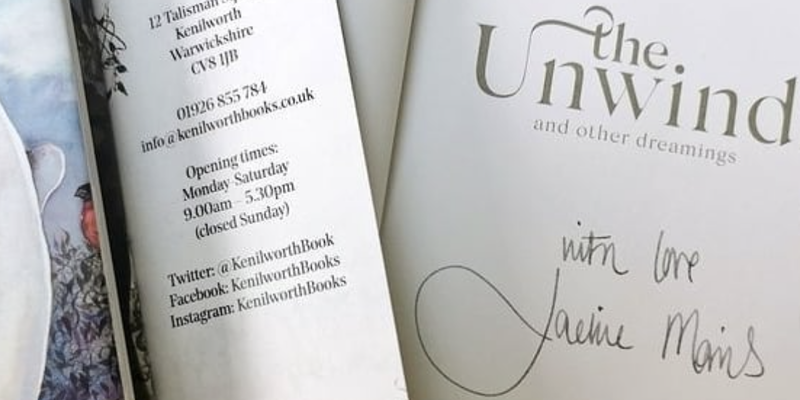 12 Talisman
Kenilworth
Warwickshire
CV8 1JB
01926 855 784
info@kenilworthbooks.co.uk
Opening times:
Monday-Saturday
9.00am – 5.30pm
(closed Sunday)
Twitter: @KenilworthBook
Facebook: KenilworthBooks
Instagram: KenilworthBooks
the
Unwind
and other dreamings
with love
Jackie Morris